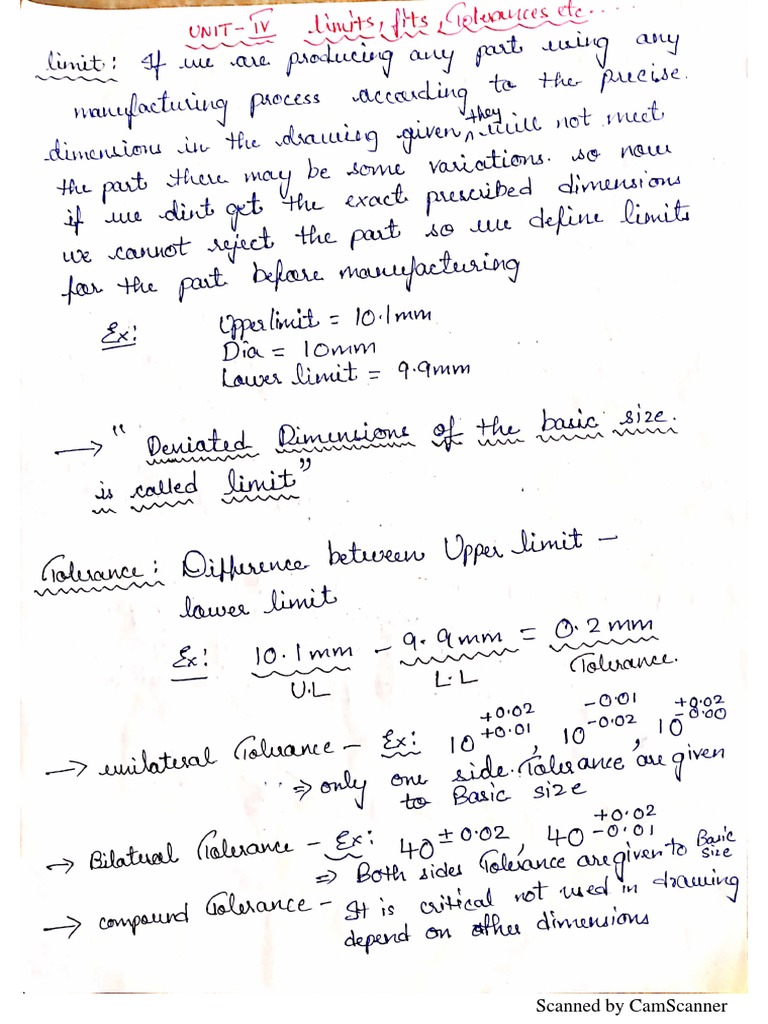 UNIT-IV limits, fits, Tolerances etc....
limit: If we are producing any part using any
manufacturing process according to the precise
dimensions in the drawing given they will not meet
the part there may be some variations. so now
if we dint get the exact prescribed dimensions
we cannot reject the part so we define limits
for the part before manufacturing
Ex: Upper limit = 10.1mm
Dia = 10mm
Lower limit = 9.9mm
→ "Deviated Dimensions of the basic size.
is called limit"
Tolerance: Difference between Upper limit -
lower limit
Ex: 10.1mm - 9.9mm = 0.2mm
U.L L.L Tolerance.
→ unilateral Tolerance - Ex: 10 +0.02 +0.01, 10 -0.01 -0.02, 10 +0.02 -0.00
⇒ only one side. Tolerance are given
to Basic size
→ Bilateral Tolerance - Ex: 40 ±0.02, 40 +0.02 -0.01
⇒ Both sides Tolerance are given to Basic size
→ compound Tolerance - It is critical not used in drawing
depend on other dimensions
Scanned by CamScanner